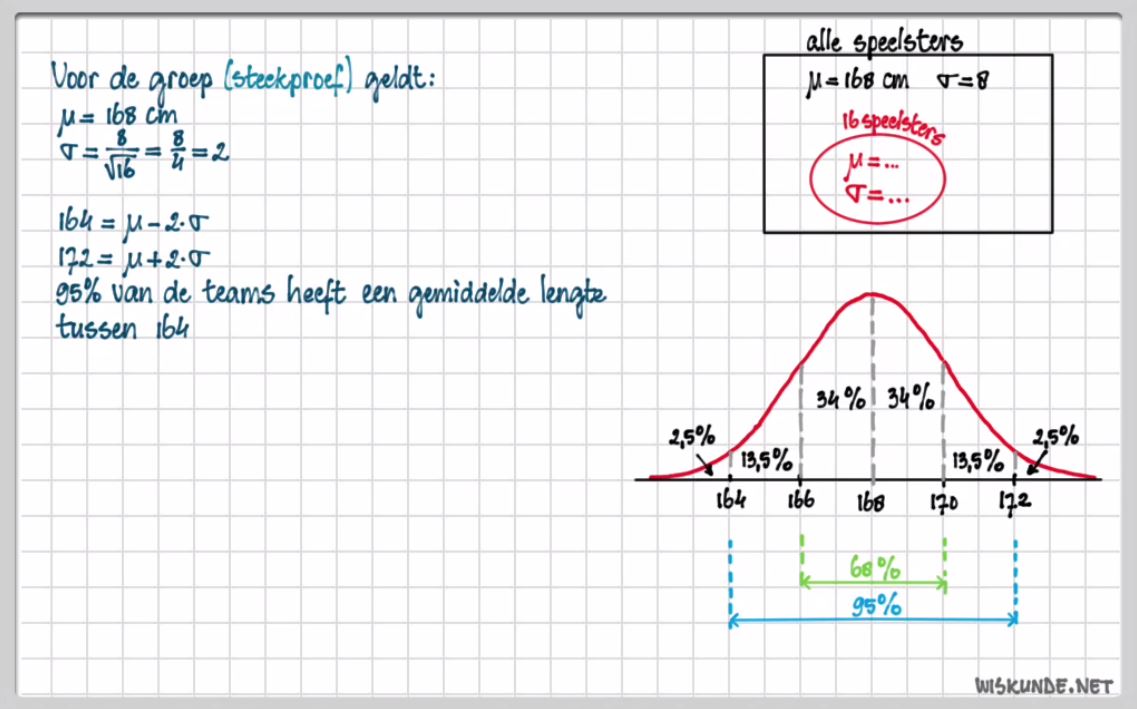 Voor de groep (steekproef) geldt:
μ = 168 cm
σ = 8/√16 = 8/4 = 2
164 = μ - 2·σ
172 = μ + 2·σ
95% van de teams heeft een gemiddelde lengte
tussen 164
alle speelsters
μ = 168 cm σ = 8
16 speelsters
μ = ...
σ = ...
34% 34%
2,5% 13,5% 13,5% 2,5%
164 166 168 170 172
68%
95%
WISKUNDE.NET